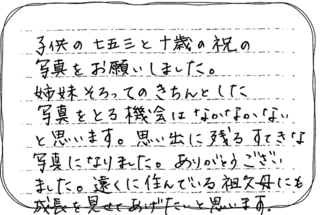 子供の七五三と十歳の祝の
写真をお願いしました。
姉妹そろってのきちんとした
写真をとる機会はなかなかない
と思います。思い出に残るすてきな
写真になりました。ありがとうござい
ました。遠くに住んでいる祖父母にも
成長を見せてあげたいと思います。